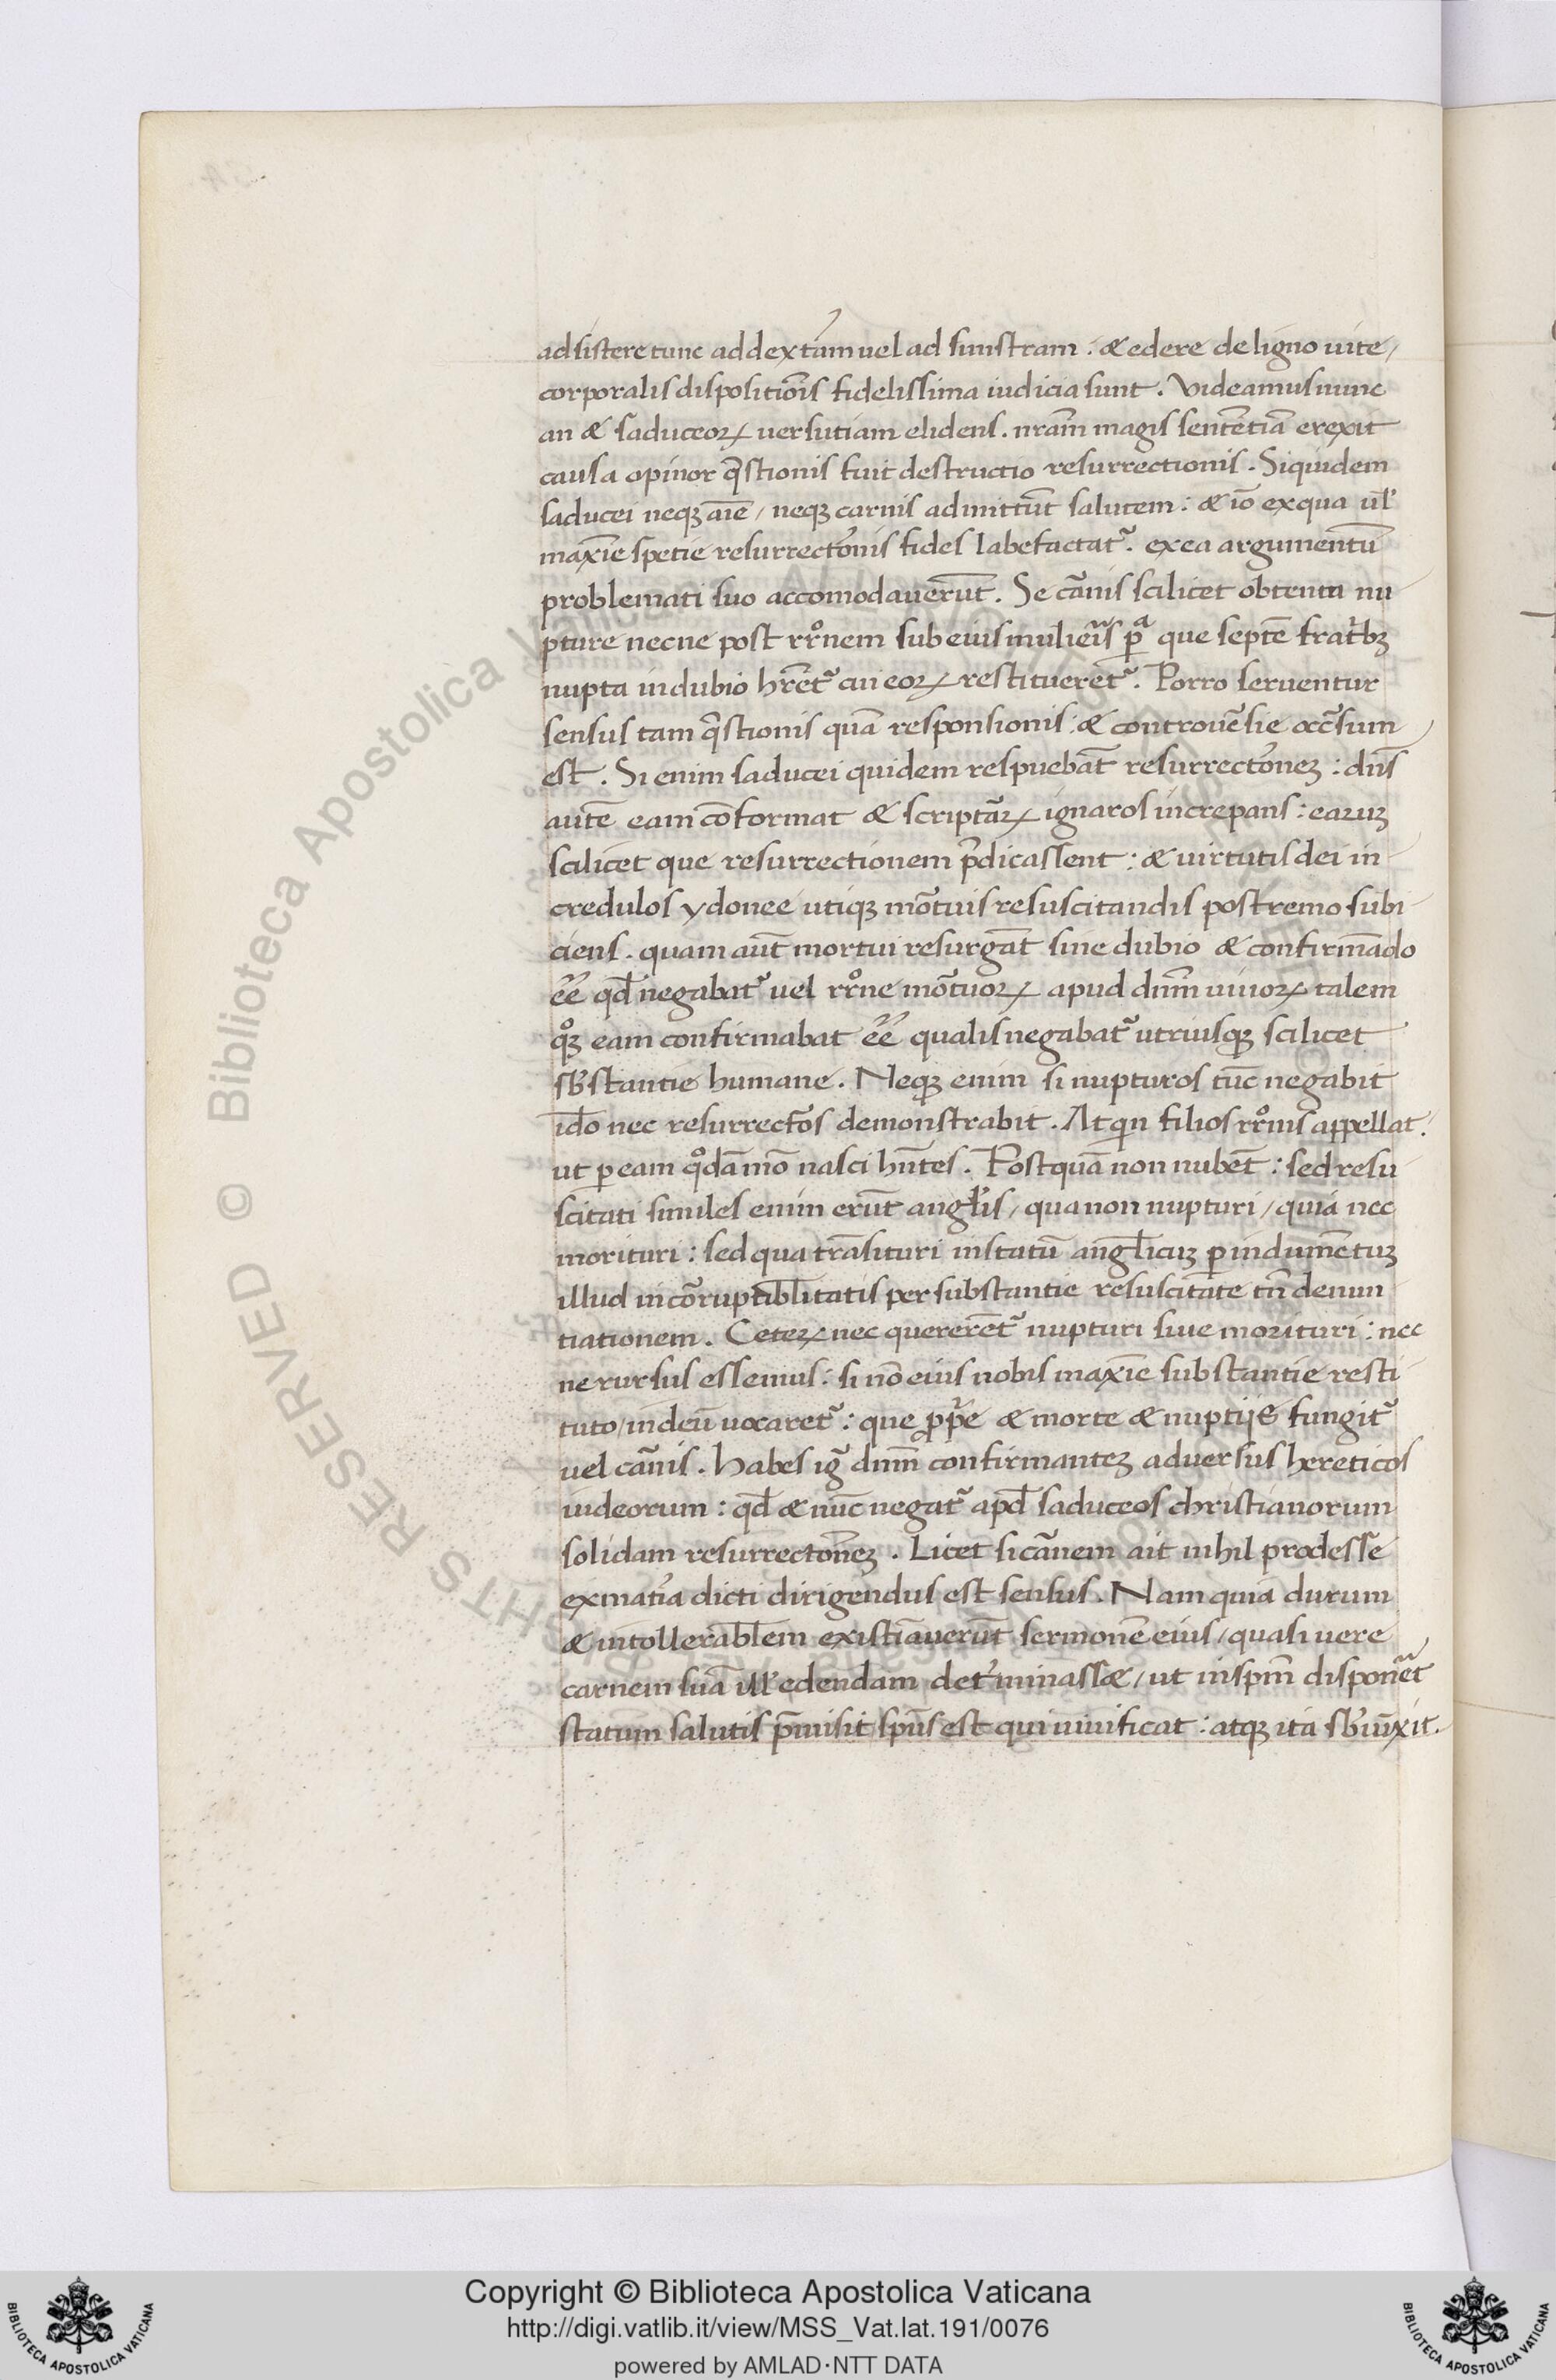 adsistere tunc ad dext̃am uel ad sinistram : & edere de ligno uite /
corporalis dispositiõis fidelissima iudicia sunt . Videamus nunc
an & saduceoꝝ uersutiam elidens . nr̃am magis sentẽtiã erexit
causa opinor q̃stionis fuit destructio resurrectionis . Siquidem
saducei neqꝫ aĩe / neqꝫ carnis admittũt salutem : & iõ ex qua ul̛
maxĩe spetie resurrectõnis fides labefactat᷑ . ex ea argumentũ
problemati suo accomodauerũt . Se cãnis scilicet obtentu nu
pture necne post rr̃onem sub eius muliẽis p̱ᵃ que septẽ frat̃bꝫ
nupta in dubio hr̃et᷑ cui eoꝝ restitueret᷑ . Porro seruentur
sensus tam q̃stionis quã responsionis : & controuẽsie occ̃sum
est . Si enim saducei quidem respuebãt resurrectõneꝫ : dñs
autẽ eam cõformat & scriptãꝝ ignaros increpans : earuꝫ
scilicet que resurrectionem p̃dicassent : & uirtutis dei in
credulos ydonee utiqꝫ mõtuis resuscitandis postremo subi
ciens . quam aut̃ mortui resurgãt sine dubio & confirmãdo
ẽe qd̃ negabat᷑ uel rr̃one mõtuoꝝ apud dñm uiuoꝝ talem
qͦꝫ eam confirmabat ẽe qualis negabat᷑ utriusqꝫ scilicet
sb̛stantie humane . Neqꝫ enim si nupturos tũc negabit
id̃o nec resurrectõs demonstrabit . Atqui filios rr̃onis appellat .
ut ꝑ eam qͦdãmõ nasci hñtes . Postquã non nubẽt : sed resu
scitati similes enim erũt angl̃is / qua non nupturi / quia nec
morituri : sed qua trãsituri in statũ angl̃icuꝫ ꝑ indumẽtuꝫ
illud incõruptibl̃itatis per substantie resuscitate tñ denun
tiationem . Ceteꝝ nec quererẽt᷑ nupturi siue morituri : nec
ne rursus essemus : si nõ eius nobis maxĩe substantie resti
tuto / indeũ uocaret᷑ : que ꝓp̃e & morte & nuptijs fungit᷑
uel cãnis . Habes ig̃ dñm confirmanteꝫ aduersus hereticos
iudeorum : qd̃ & nũc negat᷑ apd̃ saduceos christianorum
solidam resurrectõneꝫ . Licet si cãnem ait nihil prodesse
ex mat̃ia dicti dirigendus est sensus . Nam quia durum
& intollerabl̃em existiãuerũt sermonẽ eius / quasi uere
carnem suã ill̛ edendam det̃minass& / ut in sp̃m disponẽt
statum salutis p̃misit sp̃us est qui uiuificat : atqꝫ ita sb̛iũxit .
Copyright © Biblioteca Apostolica Vaticana
http://digi.vatlib.it/view/MSS_Vat.lat.191/0076
powered by AMLAD·NTT DATA